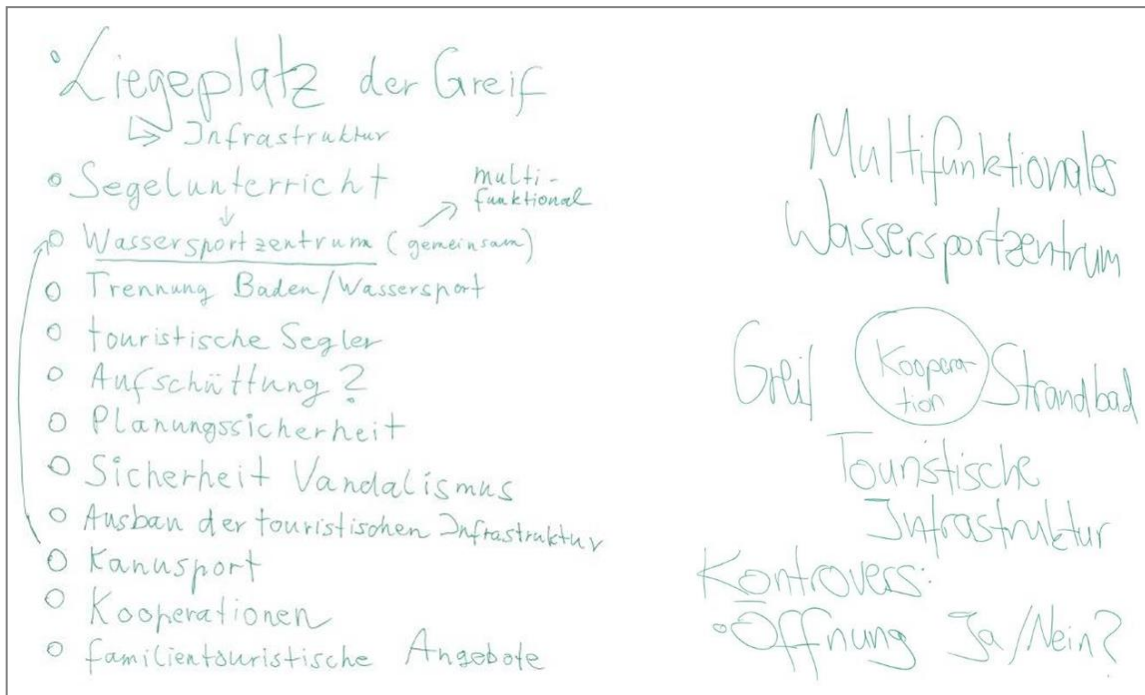 Liegeplatz der Greif
↳ Infrastruktur
Segelunterricht
multi-
funktional
Wassersportzentrum (gemeinsam)
Trennung Baden/Wassersport
touristische Segler
Aufschüttung?
Planungssicherheit
Sicherheit Vandalismus
Ausbau der touristischen Infrastruktur
Kanusport
Kooperationen
familientouristische Angebote
Multifunktionales
Wassersportzentrum
Greif Koopera-
tion Strandbad
Touristische
Infrastruktur
Kontrovers:
Öffnung Ja/Nein?